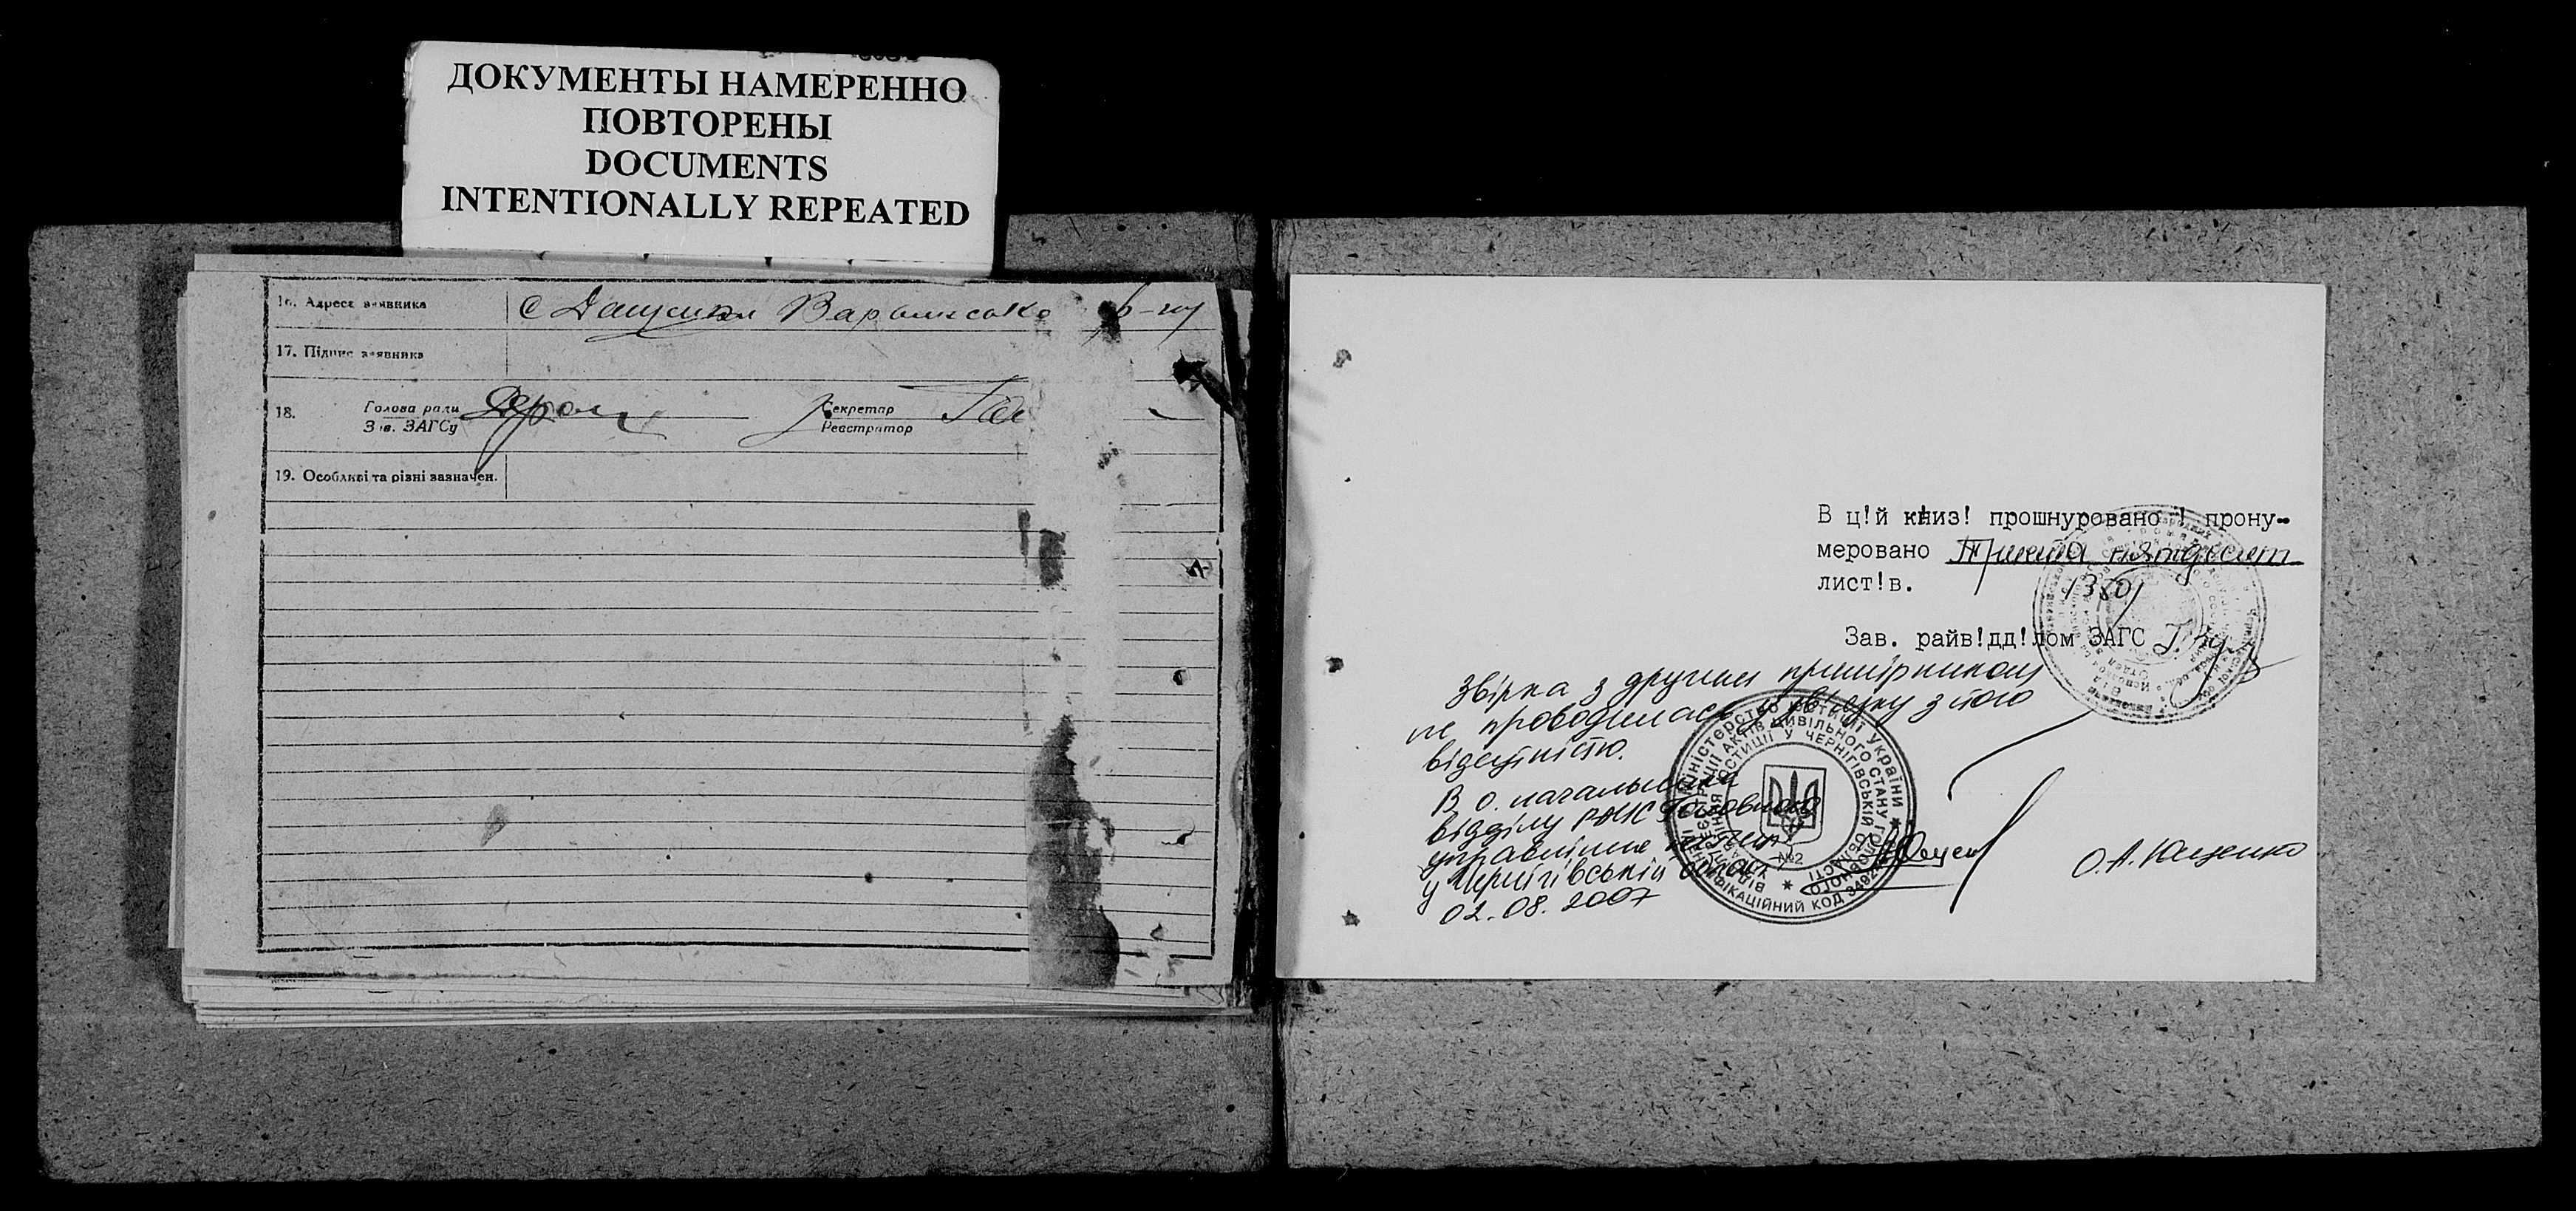 ДОКУМЕНТЫ НАМЕРЕННО
ПОВТОРЕНЫ
DOCUMENTS
INTENTIONALLY REPEATED
16. Адреса заявника с Дащенки Варвинсько р-ну
17. Підпис заявника
18. Голова ради Секретар
Зав. ЗАГСу Реєстратор
19. Особливі та різні зазначен.
В ц!й книз! прошнуровано ! прону-
меровано Триста пятдесят
лист!в. /350/
Зав. райв!дд!лом ЗАГС
Звірка з другим примірником
не проводилась у зв'язку з його
відсутністю.
В о. начальника
відділу РАЦС Головного
управління юстиції
у Чернігівській області
02.08.2007
О.А. Ющенко
МІНІСТЕРСТВО ЮСТИЦІЇ УКРАЇНИ
ІДЕНТИФІКАЦІЙНИЙ КОД
№2